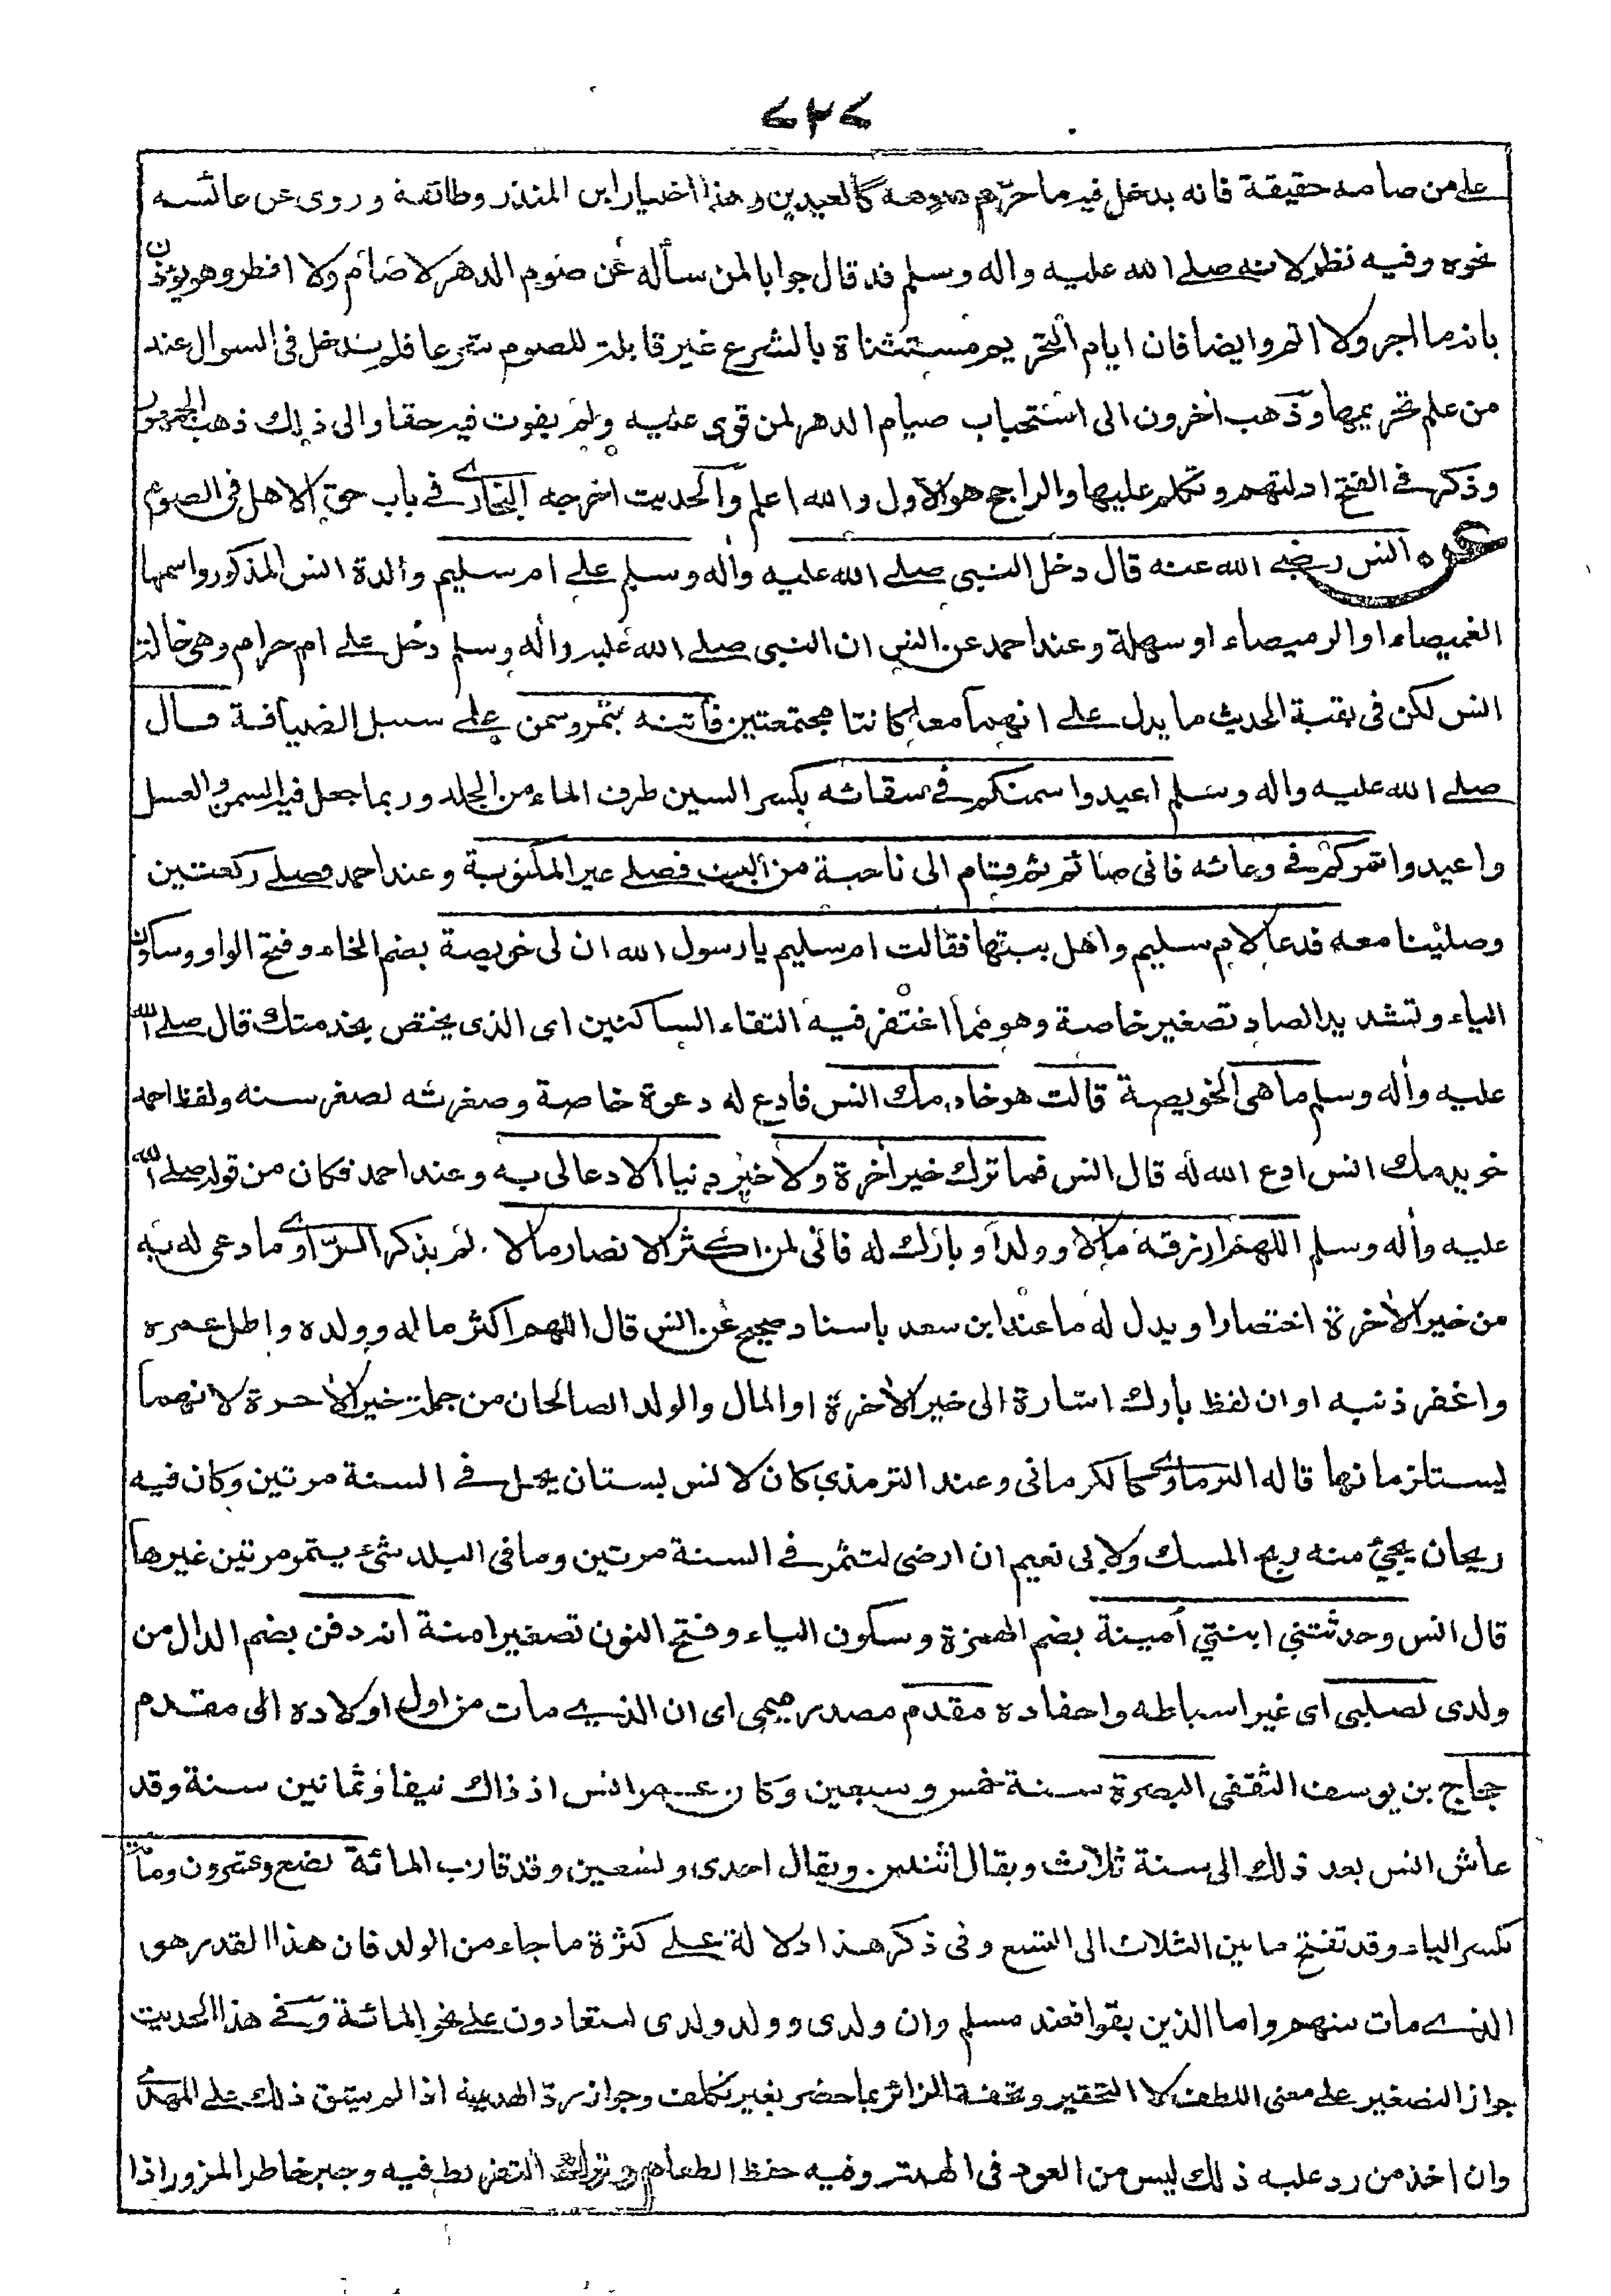 ٢٣٢
على من صامه حقيقة فانه يدخل فيه ما حرم صومه كالعيدين وهذا اختيار ابن المنذر وطائفة وروى عن عائشه
نحوه وفيه نظر لانه صلى الله عليه واله وسلم قد قال جوابا لمن سأله عن صوم الدهر لا صام ولا افطر وهو يؤذن
بانه ما اجر ولا اثم وايضا فان ايام التحريم مستثناة بالشرع غير قابلة للصوم شرعا فلم يدخل فى السوال عند
من علم تحريمها وذهب اخرون الى استحباب صيام الدهر لمن قوى عليه ولم يفوت فيه حقا والى ذلك ذهب الجمهور
وذكر فى الفتح ادلتهم وتكلم عليها والراجح هو الاول والله اعلم والحديث اخرجه البخارى فى باب حق الاهل فى الصوم
عن انس رضى الله عنه قال دخل النبى صلى الله عليه واله وسلم على ام سليم والدة انس المذكور واسمها
الغميصاء او الرميصاء او سهلة وعند احمد عن انس ان النبى صلى الله عليه واله وسلم دخل على ام حرام وهى خالة
انس لكن فى بقية الحديث ما يدل على انهما معا كانتا مجتمعتين فأتته بتمر وسمن على سبيل الضيافة قال
صلى الله عليه واله وسلم اعيدوا سمنكم فى سقائه بكسر السين ظرف الماء من الجلد وربما جعل فيه السمن والعسل
واعيدوا تمركم فى وعائه فانى صائم ثم قام الى ناحية من البيت فصلى غير المكتوبة وعند احمد فصلى ركعتين
وصلينا معه فدعا لام سليم واهل بيتها فقالت ام سليم يا رسول الله ان لى خويصة بضم الخاء وفتح الواو وسكون
الياء وتشديد الصاد تصغير خاصة وهو مما اغتفر فيه التقاء الساكنين اى الذى يختص بخدمتك قال صلى الله
عليه واله وسلم ما هى الخويصة قالت هو خادمك انس فادع له دعوة خاصة وصغرته لصغر سنه ولفظ احمد
خويدمك انس ادع الله له قال انس فما ترك خير اخرة ولا خير دنيا الا دعا لى به وعند احمد فكان من قوله صلى الله
عليه واله وسلم اللهم ارزقه مالا وولدا وبارك له فانى لمن اكثر الانصار مالا . لم يذكر الراوى ما دعى له به
من خير الاخرة اختصارا ويدل له ما عند ابن سعد باسناد صحيح عن انس قال اللهم اكثر ماله وولده واطل عمره
واغفر ذنبه او ان لفظ بارك اشارة الى خير الاخرة او المال والولد الصالحان من جملة خير الاخرة لانهما
يستلزمانها قاله البرماوى كالكرمانى وعند الترمذى كان لانس بستان يحمل فى السنة مرتين وكان فيه
ريحان يجئ منه ريح المسك ولابى نعيم ان ارضى لتثمر فى السنة مرتين وما فى البلد شئ يثمر مرتين غيرها
قال انس وحدثتنى ابنتى أمينة بضم الهمزة وسكون الياء وفتح النون تصغير امنة انه دفن بضم الدال من
ولدى لصلبى اى غير اسباطه واحفاده مقدم مصدر ميمى اى ان الذى مات من اول اولاده الى مقدم
حجاج بن يوسف الثقفى البصرة سنة خمس وسبعين وكان عمر انس اذ ذاك نيفا وثمانين سنة وقد
عاش انس بعد ذلك الى سنة ثلاث ويقال اثنين . ويقال احدى وتسعين وقد قارب المائة بضع وعشرون ومائة
بكسر الباء وقد تفتح ما بين الثلاث الى التسع وفى ذكر هذا دلالة على كثرة ما جاء من الولد فان هذا القدر هو
الذى مات منهم واما الذين بقوا فعند مسلم وان ولدى وولد ولدى ليتعادون على نحو المائة وفى هذا الحديث
جواز التصغير على معنى اللطف لا التحقير وتحفة الزائر بما حضر بغير تكلف وجواز رد الهدية اذا لم يشق ذلك على المهدى
وان اخذ من رد عليه ذلك ليس من العود فى الهبة وفيه حفظ الطعام وترك التفريط فيه وجبر خاطر المزور اذا